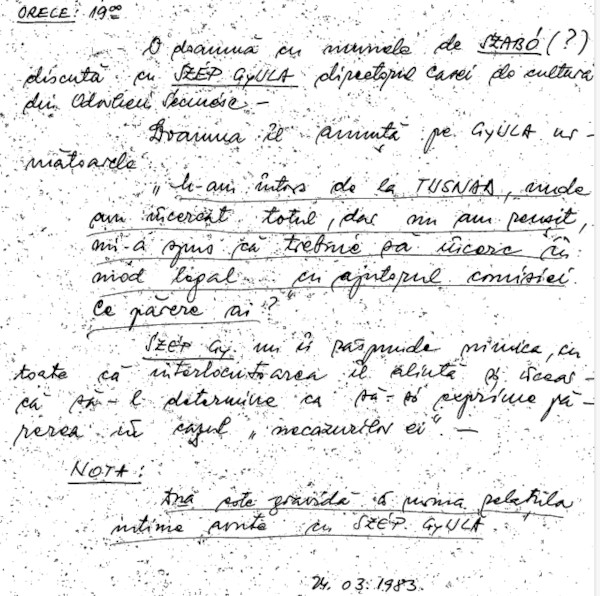 ORELE: 19⁰⁰
O doamnă cu numele de SZABÓ (?)
discută cu SZÉP GYULA directorul Casei de cultură
din Odorheiu Secuiesc –
Doamna îl anunță pe GYULA ur-
mătoarele:
„M-am întors de la TUSNAD, unde
am încercat totul, dar nu am reușit,
mi-a spus că trebuie să încerc în
mod legal cu ajutorul comisiei.
Ce părere ai?"
SZÉP Gy. nu îi răspunde nimica, cu
toate că interlocutoarea îl alintă și încear-
că să-l determine ca să-și exprime pă-
rerea în cazul „necazurilor ei". –
NOTA:
este gravidă în urma relațiile
intime avute cu SZÉP GYULA.
24.03.1983.